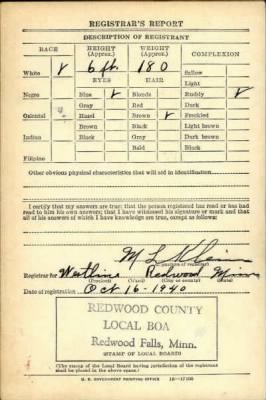 REGISTRAR'S REPORT
DESCRIPTION OF REGISTRANT
RACE HEIGHT (Approx.) WEIGHT (Approx.) COMPLEXION
White ✓ 6 ft. 180 Sallow
EYES HAIR Light
Negro Blue ✓ Blonde Ruddy ✓
Gray Red Dark
Oriental Hazel Brown ✓ Freckled
Brown Black Light brown
Indian Black Gray Dark brown
Bald Black
Filipino
Other obvious physical characteristics that will aid in identification
I certify that my answers are true; that the person registered has read or has
had read to him his own answers; that I have witnessed his signature or mark and that
all of his answers of which I have knowledge are true, except as follows:
M L Klein
(Signature of registrar)
Registrar for Westline Redwood Minn
(Precinct) (Ward) (City or county) (State)
Date of registration Oct 16-1940
REDWOOD COUNTY
LOCAL BOA
Redwood Falls, Minn.
(STAMP OF LOCAL BOARD)
(The stamp of the Local Board having jurisdiction of the registrant
shall be placed in the above space.)
U. S. GOVERNMENT PRINTING OFFICE 16—17105